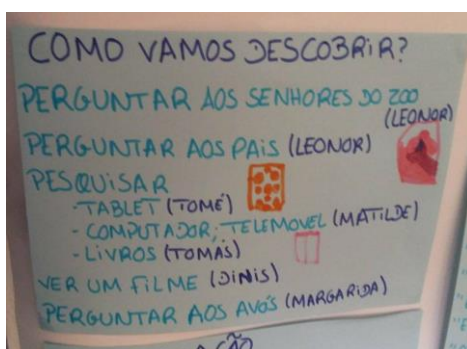 COMO VAMOS DESCOBRIR?
PERGUNTAR AOS SENHORES DO ZOO
(LEONOR)
PERGUNTAR AOS PAIS (LEONOR)
PESQUISAR
- TABLET (TOMÉ)
- COMPUTADOR; TELEMOVEL (MATILDE)
- LIVROS (TOMÁS)
VER UM FILME (DINIS)
PERGUNTAR AOS AVÓS (MARGARIDA)